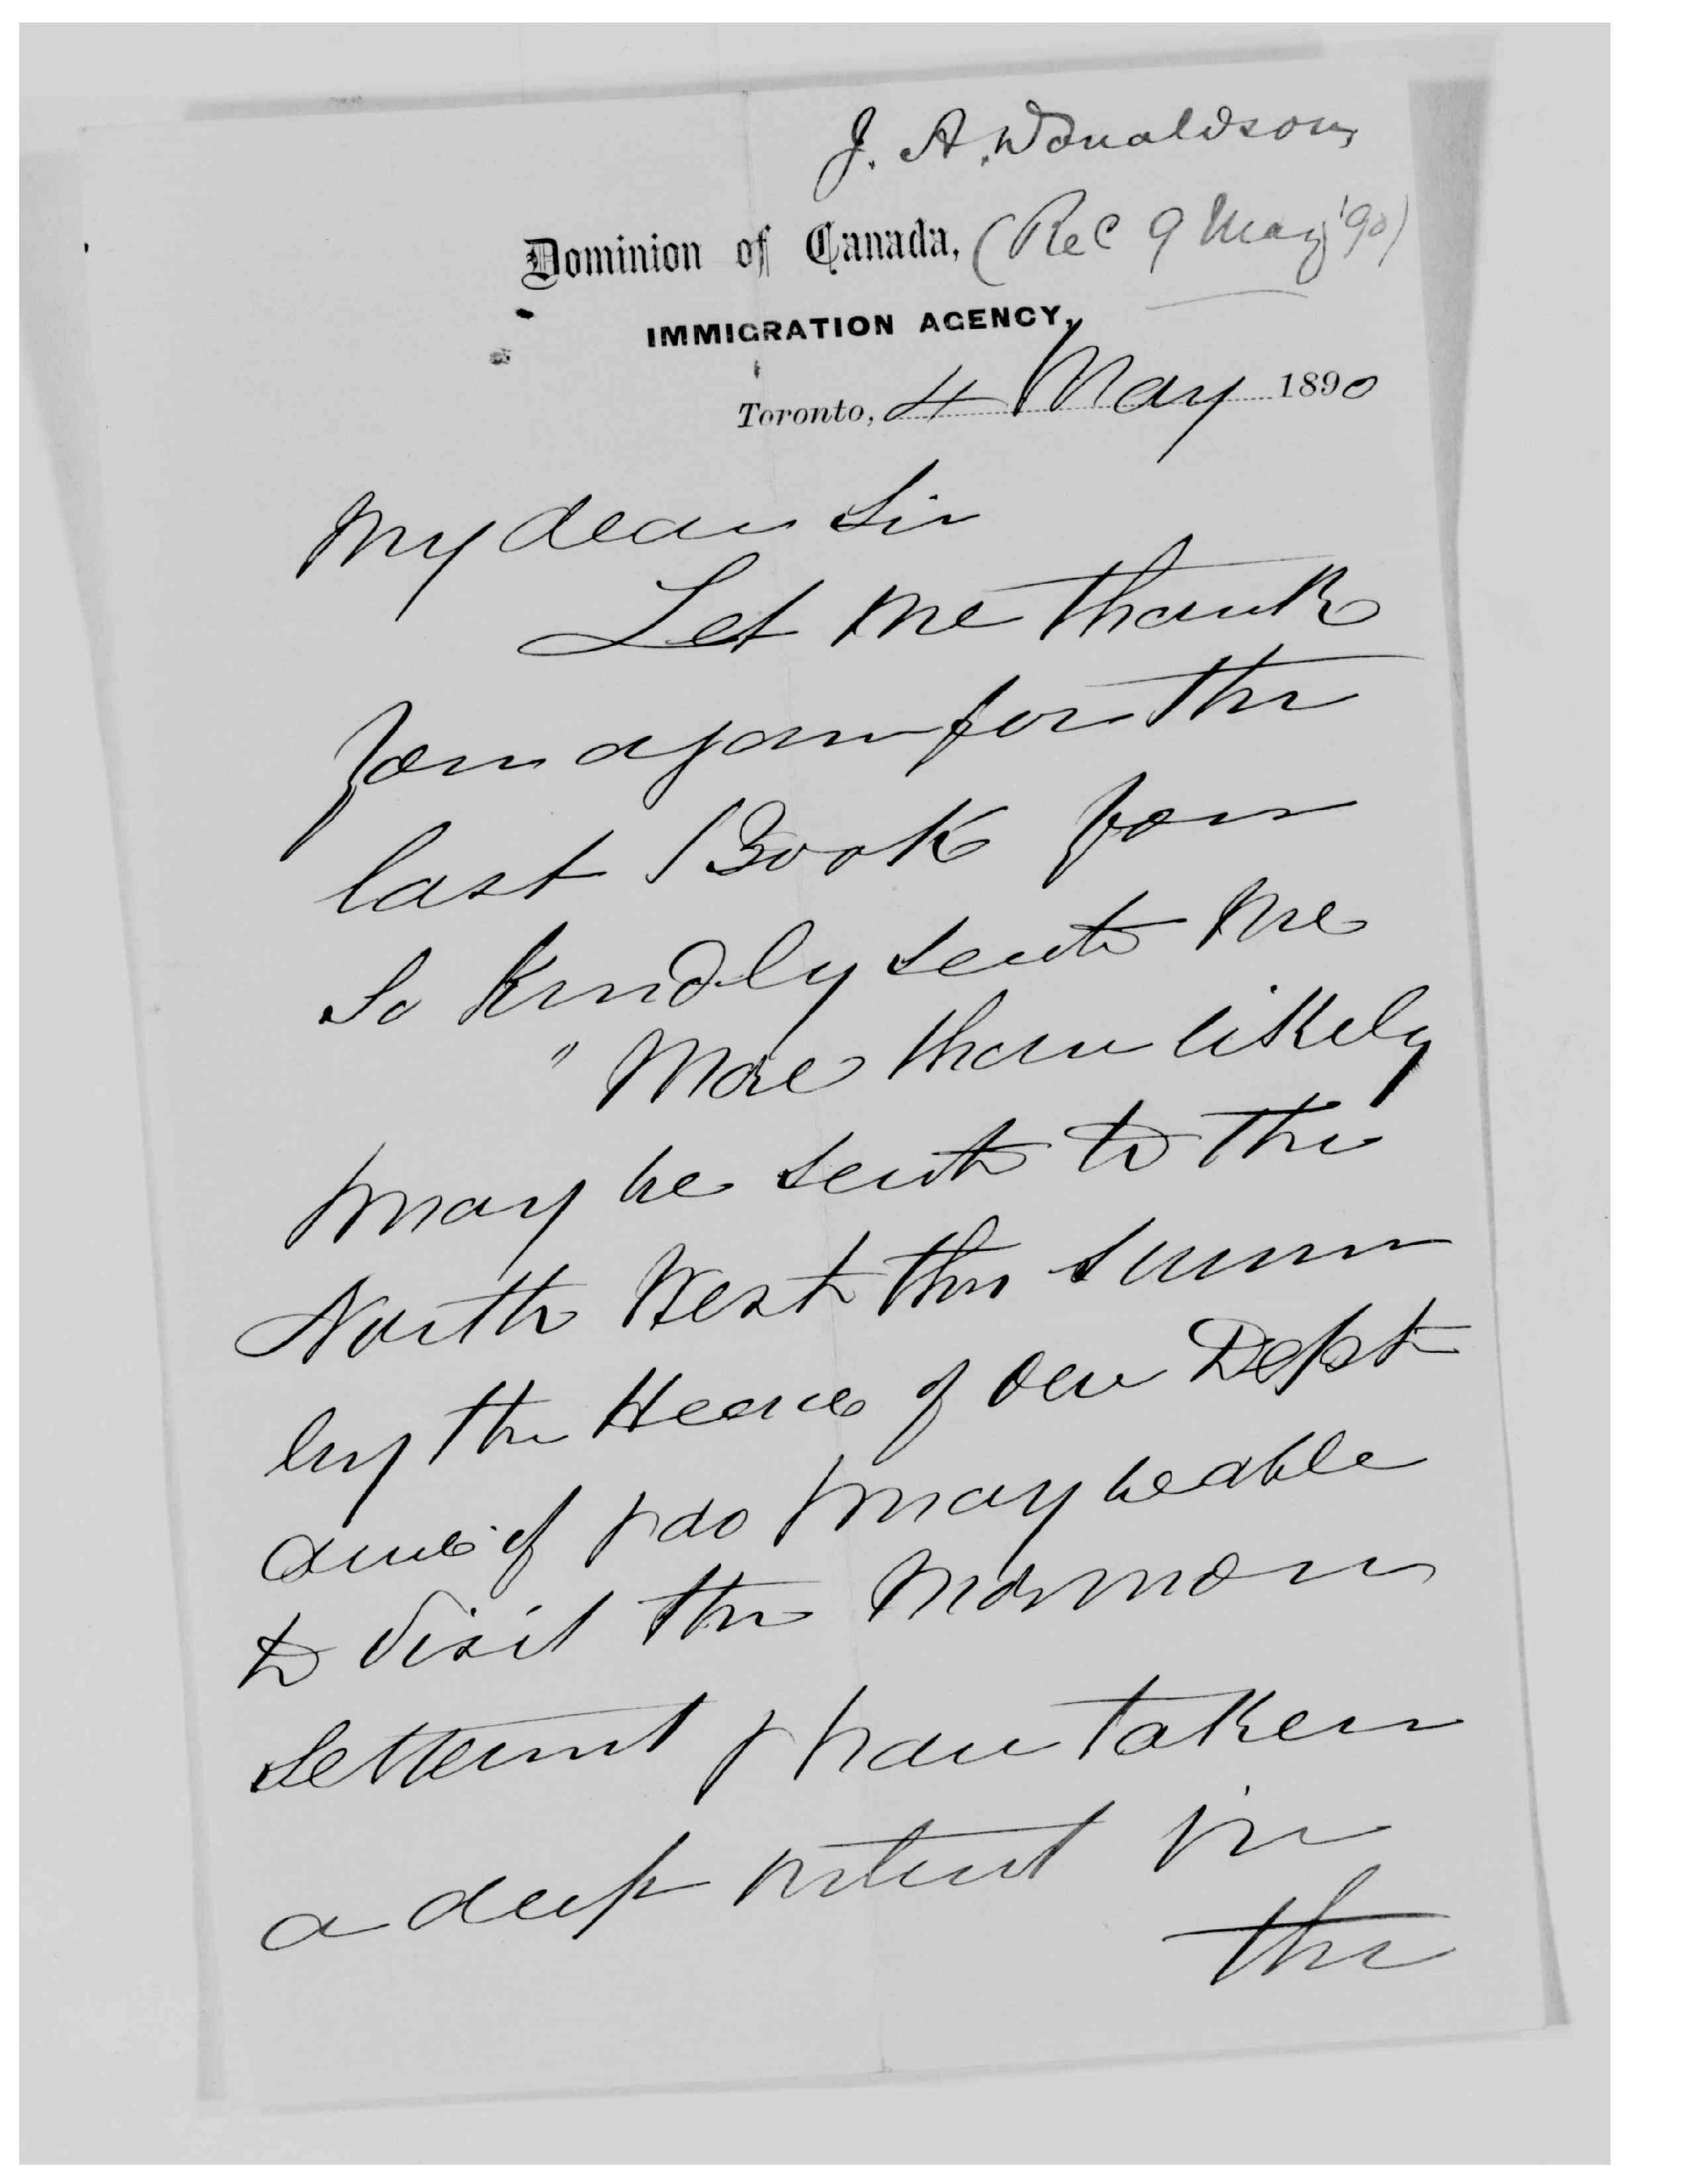 J. A. Donaldson
Dominion of Canada, (Rec 9 May '90)
IMMIGRATION AGENCY,
Toronto, 4 May 1890
My dear Sir
Let me thank
you again for the
last Book you
so kindly sent me
" More than likely
may be sent to the
North West this summ
by the Head of our Dept
and if I do may be able
to visit the Mormon
Settlemt I have taken
a deep interest in
the